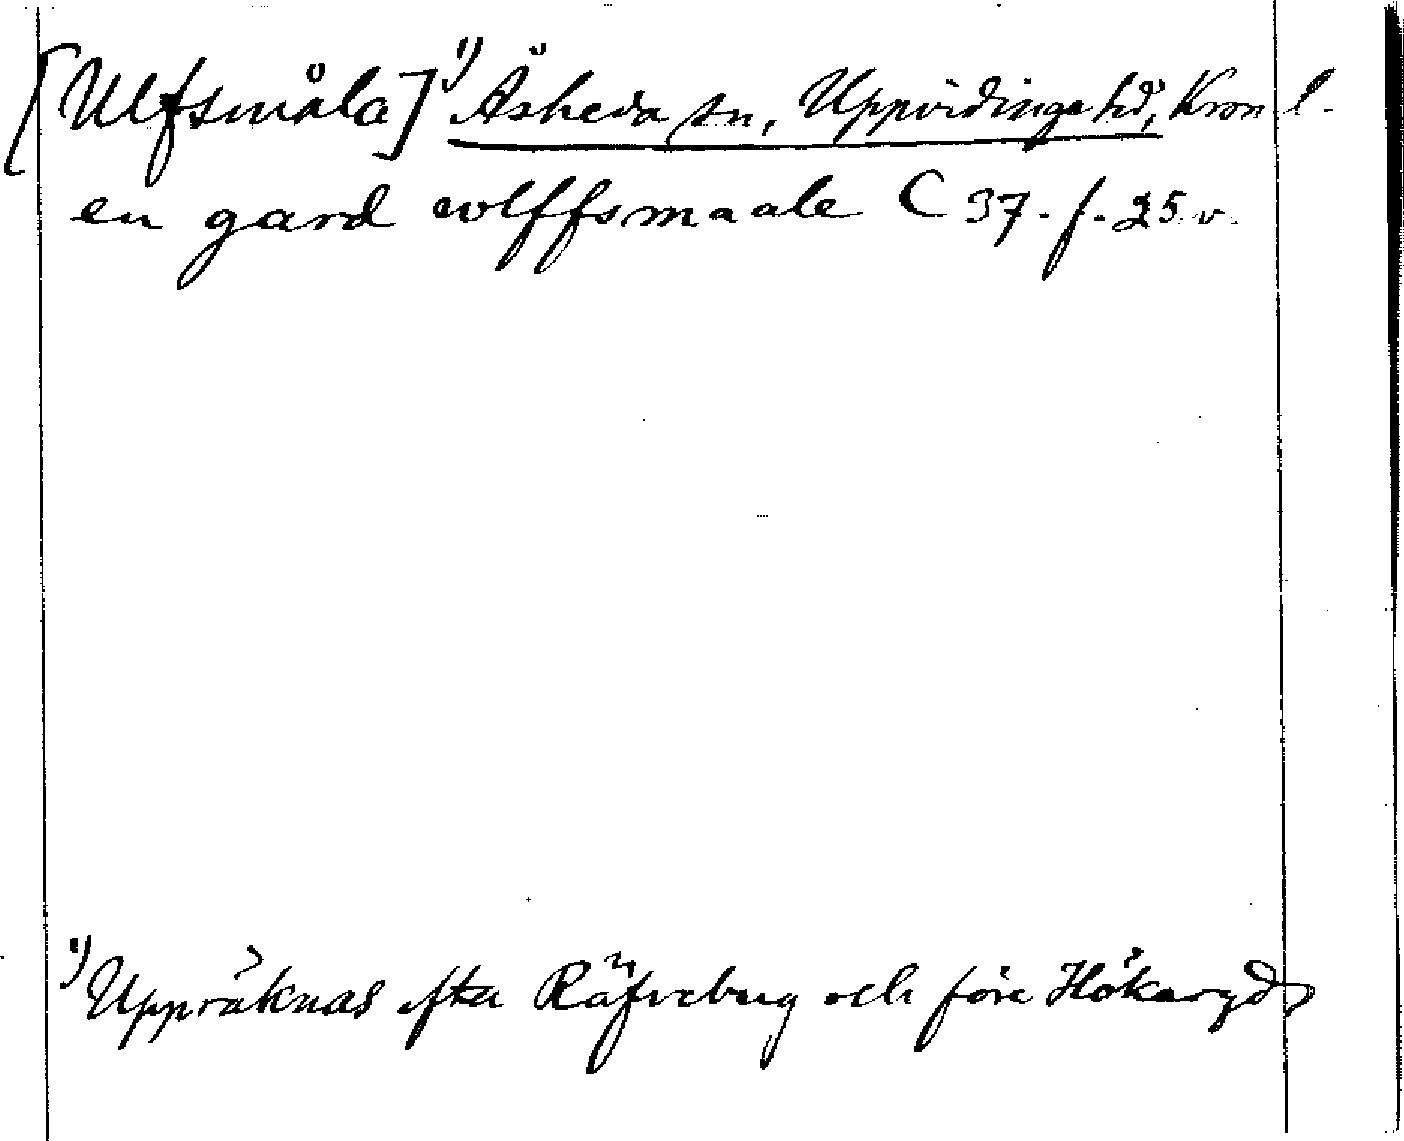 [Ulfsmåla]¹⁾ Äsheda sn, Uppvidinge hd, Kron l.
en gard wlffsmaale C 37. f. 25 v.
¹⁾ Uppräknas efter Räfveberg och före Hökaryd